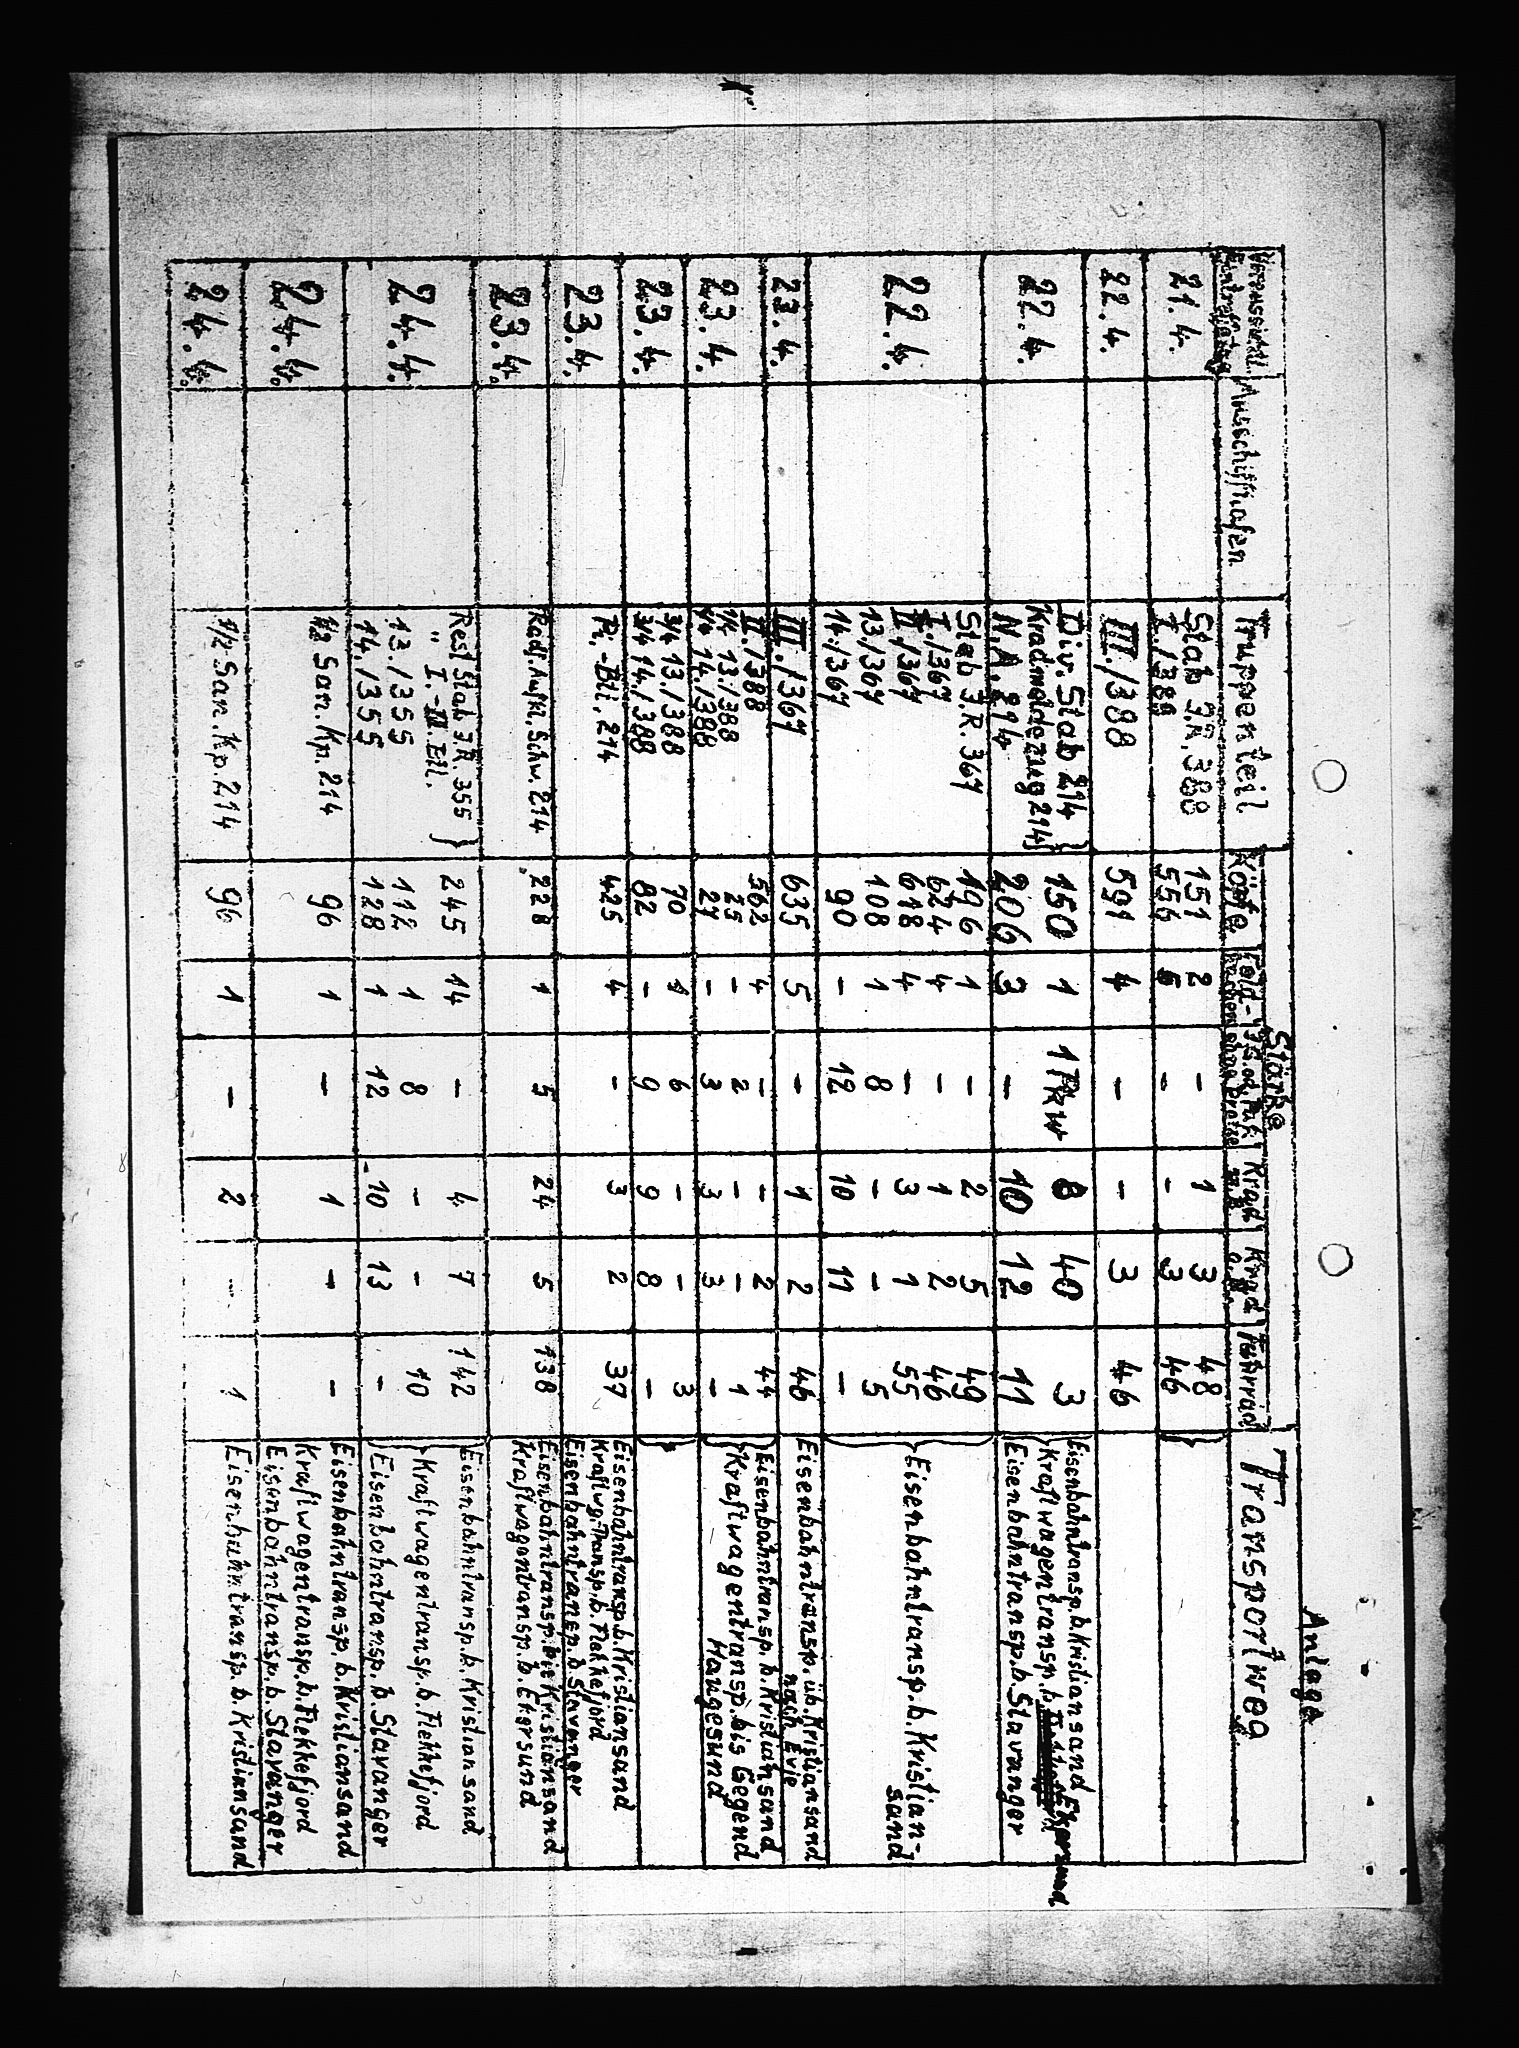 Anlage
Stärke
Voraussichtl. Eintreffetag | Ausschiffhafen | Truppenteil | Köpfe | Feld- | Krad m.B. | Krad o.B. | Fahrrad | Transportweg
21.4. | Stab J.R. 388 | 151 | 2 | - | 1 | 3 | 48
I./388 | 556 | 5 | - | - | 3 | 46
22.4. | III./388 | 591 | 4 | - | - | 3 | 46
22.4. | Div. Stab 214 } | 150 | 1 | 1 Pkw | 8 | 40 | 3 | Eisenbahntransp. b. Kristiansand
Kradmeldezug 214 } | Kraftwagentransp. b. Ekersund
N.A. 214 | 206 | 3 | - | 10 | 12 | 11 | Eisenbahntransp. b. Stavanger
22.4. | Stab J.R. 367 | 196 | 1 | - | 2 | 5 | 49 | Eisenbahntransp. b. Kristian-
I./367 | 624 | 4 | - | 1 | 2 | 46 | sand
II./367 | 618 | 4 | - | 3 | 1 | 55
13./367 | 108 | 1 | 8 | - | - | 5
14./367 | 90 | - | 12 | 10 | 11 | -
23.4. | III./367 | 635 | 5 | - | 1 | 2 | 46 | Eisenbahntransp. üb. Kristiansand
nach Evie
23.4. | II./388 | 562 | 4 | - | - | 2 | 44 | Eisenbahntransp. b. Kristiansand
1/4 13./388 | 25 | - | 2 | - | - | 1 | Kraftwagentransp. bis Gegend
1/4 14./388 | 27 | - | 3 | 3 | 3 | - | Haugesund
23.4. | 3/4 13./388 | 70 | 1 | 6 | - | - | 3
3/4 14./388 | 82 | - | 9 | 9 | 8 | -
23.4. | Pi.-Btl. 214 | 425 | 4 | - | 3 | 2 | 37 | Eisenbahntransp. b. Kristiansand
Kraftwg.-Transp. b. Flekkefjord
Eisenbahntransp. b. Stavanger
23.4. | Radf. Aufkl. Schw. 214 | 228 | 1 | 5 | 24 | 5 | 138 | Eisenbahntransp. bis Kristiansand
Kraftwagentransp. b. Ekersund
24.4. | Rest Stab J.R. 355 } | 245 | 14 | - | 4 | 7 | 142 | Eisenbahntransp. b. Kristiansand
" I.-III. Btl.
13./355 | 112 | 1 | 8 | - | - | 10 | Kraftwagentransp. b. Flekkefjord
14./355 | 128 | 1 | 12 | 10 | 13 | - | Eisenbahntransp. b. Stavanger
24.4. | 1/2 San. Kp. 214 | 96 | 1 | - | 1 | - | - | Eisenbahntransp. b. Kristiansand
Kraftwagentransp. b. Flekkefjord
Eisenbahntransp. b. Stavanger
24.4. | 1/2 San. Kp. 214 | 96 | 1 | - | 2 | - | 1 | Eisenbahntransp. b. Kristiansand